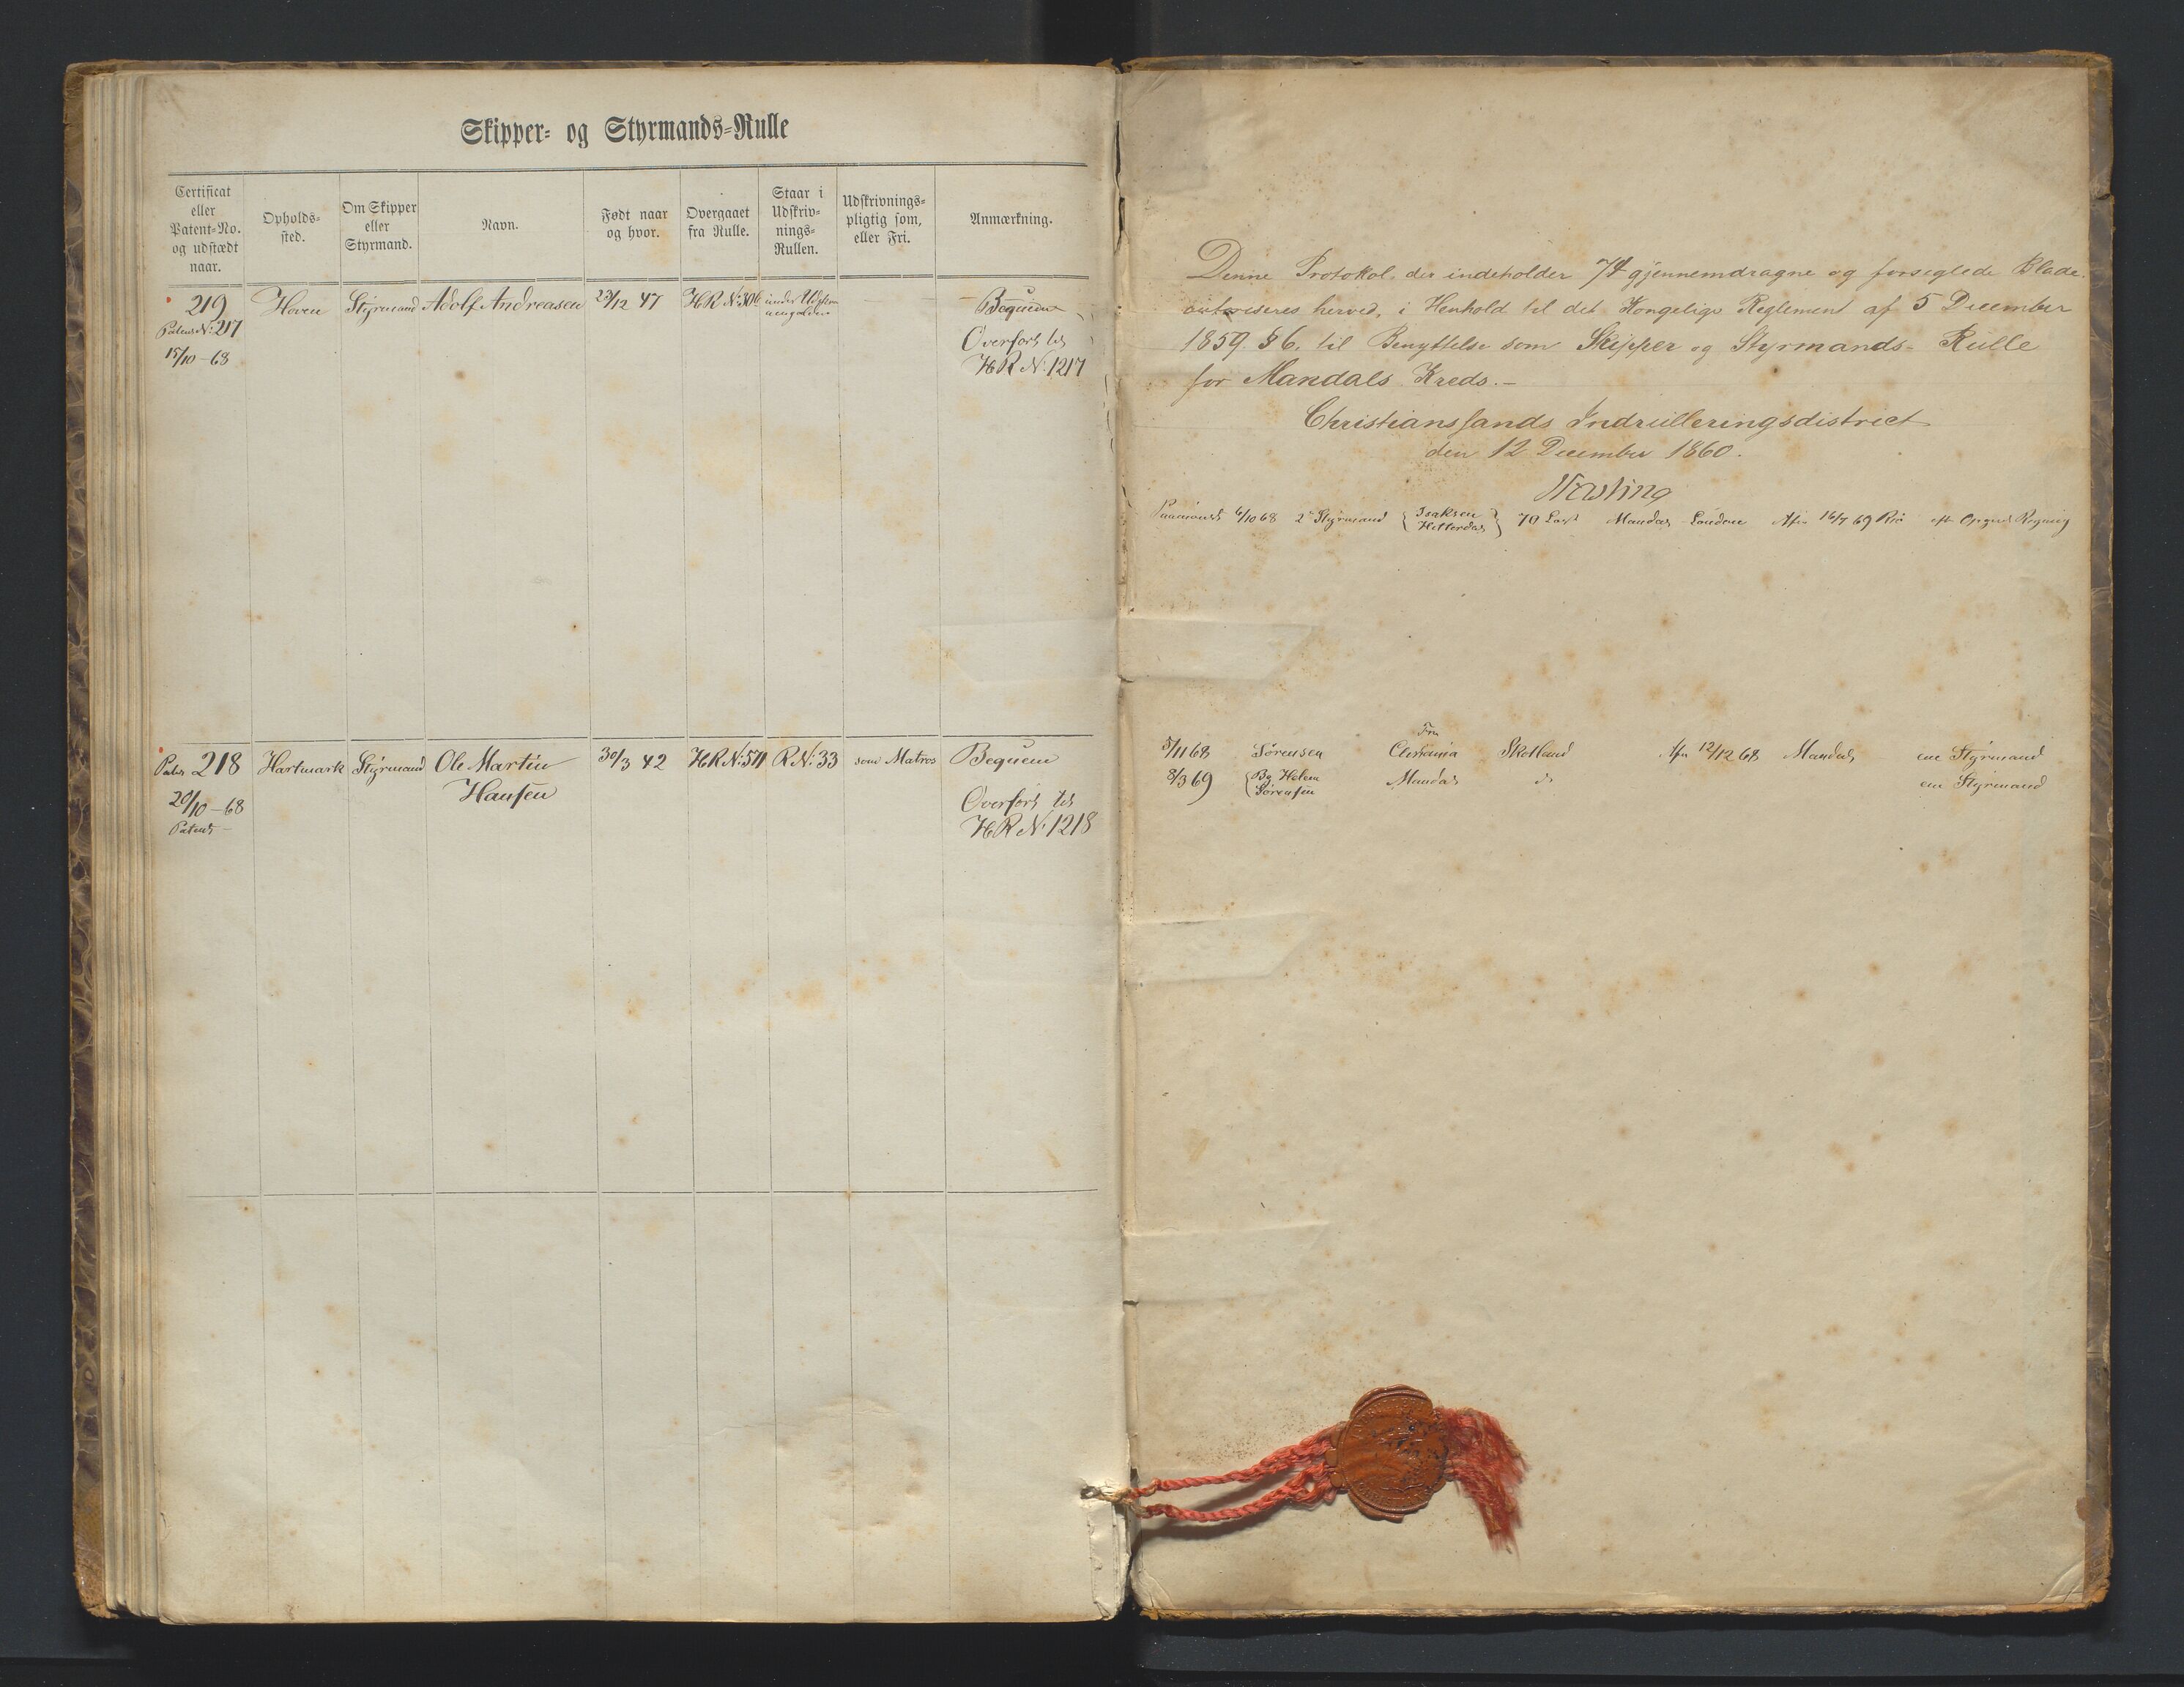 Skipper- og Styrmands-Rulle
Certificat eller Patent-No. og udstædt naar.
Opholds-sted.
Om Skipper eller Styrmand.
Navn.
Født naar og hvor.
Overgaaet fra Rulle.
Staar i Udskriv-nings-Rullen.
Udskrivnings-pligtig som, eller Fri.
Anmærkning.
219 Hoven Styrmand Adolf Andreasen 23/12 47 HR No 306 under Udskrivn Bequem
Patent No 217
15/10-68
Overført til
HR No 1217
Patent 218 Hartmark Styrmand Ole Martin 30/3 42 HR No 571 R No 33 som Matros Bequem
Hansen
20/10-68
Patent
Overført til
HR No 1218
Denne Protokol, der indeholder 74 gjennemdragne og forseglede Blade,
autoriseres herved, i Henhold til det Kongelige Reglement af 5 December
1859 § 6, til Benyttelse som Skipper og Styrmands-Rulle
for Mandals Kreds.-
Christianssands Indrulleringsdistrict
den 12 December 1860.
6/10 68 2 Styrmand { Isaksen } 70 Læst Mandal London Afm 16/7 69
Fra
5/11 68 Sørensen Christiania Skotland Afm 12/12 68 Mandal ene Styrmand
8/3 69 { Bg Helene Mandal do ene Styrmand
Sørensen